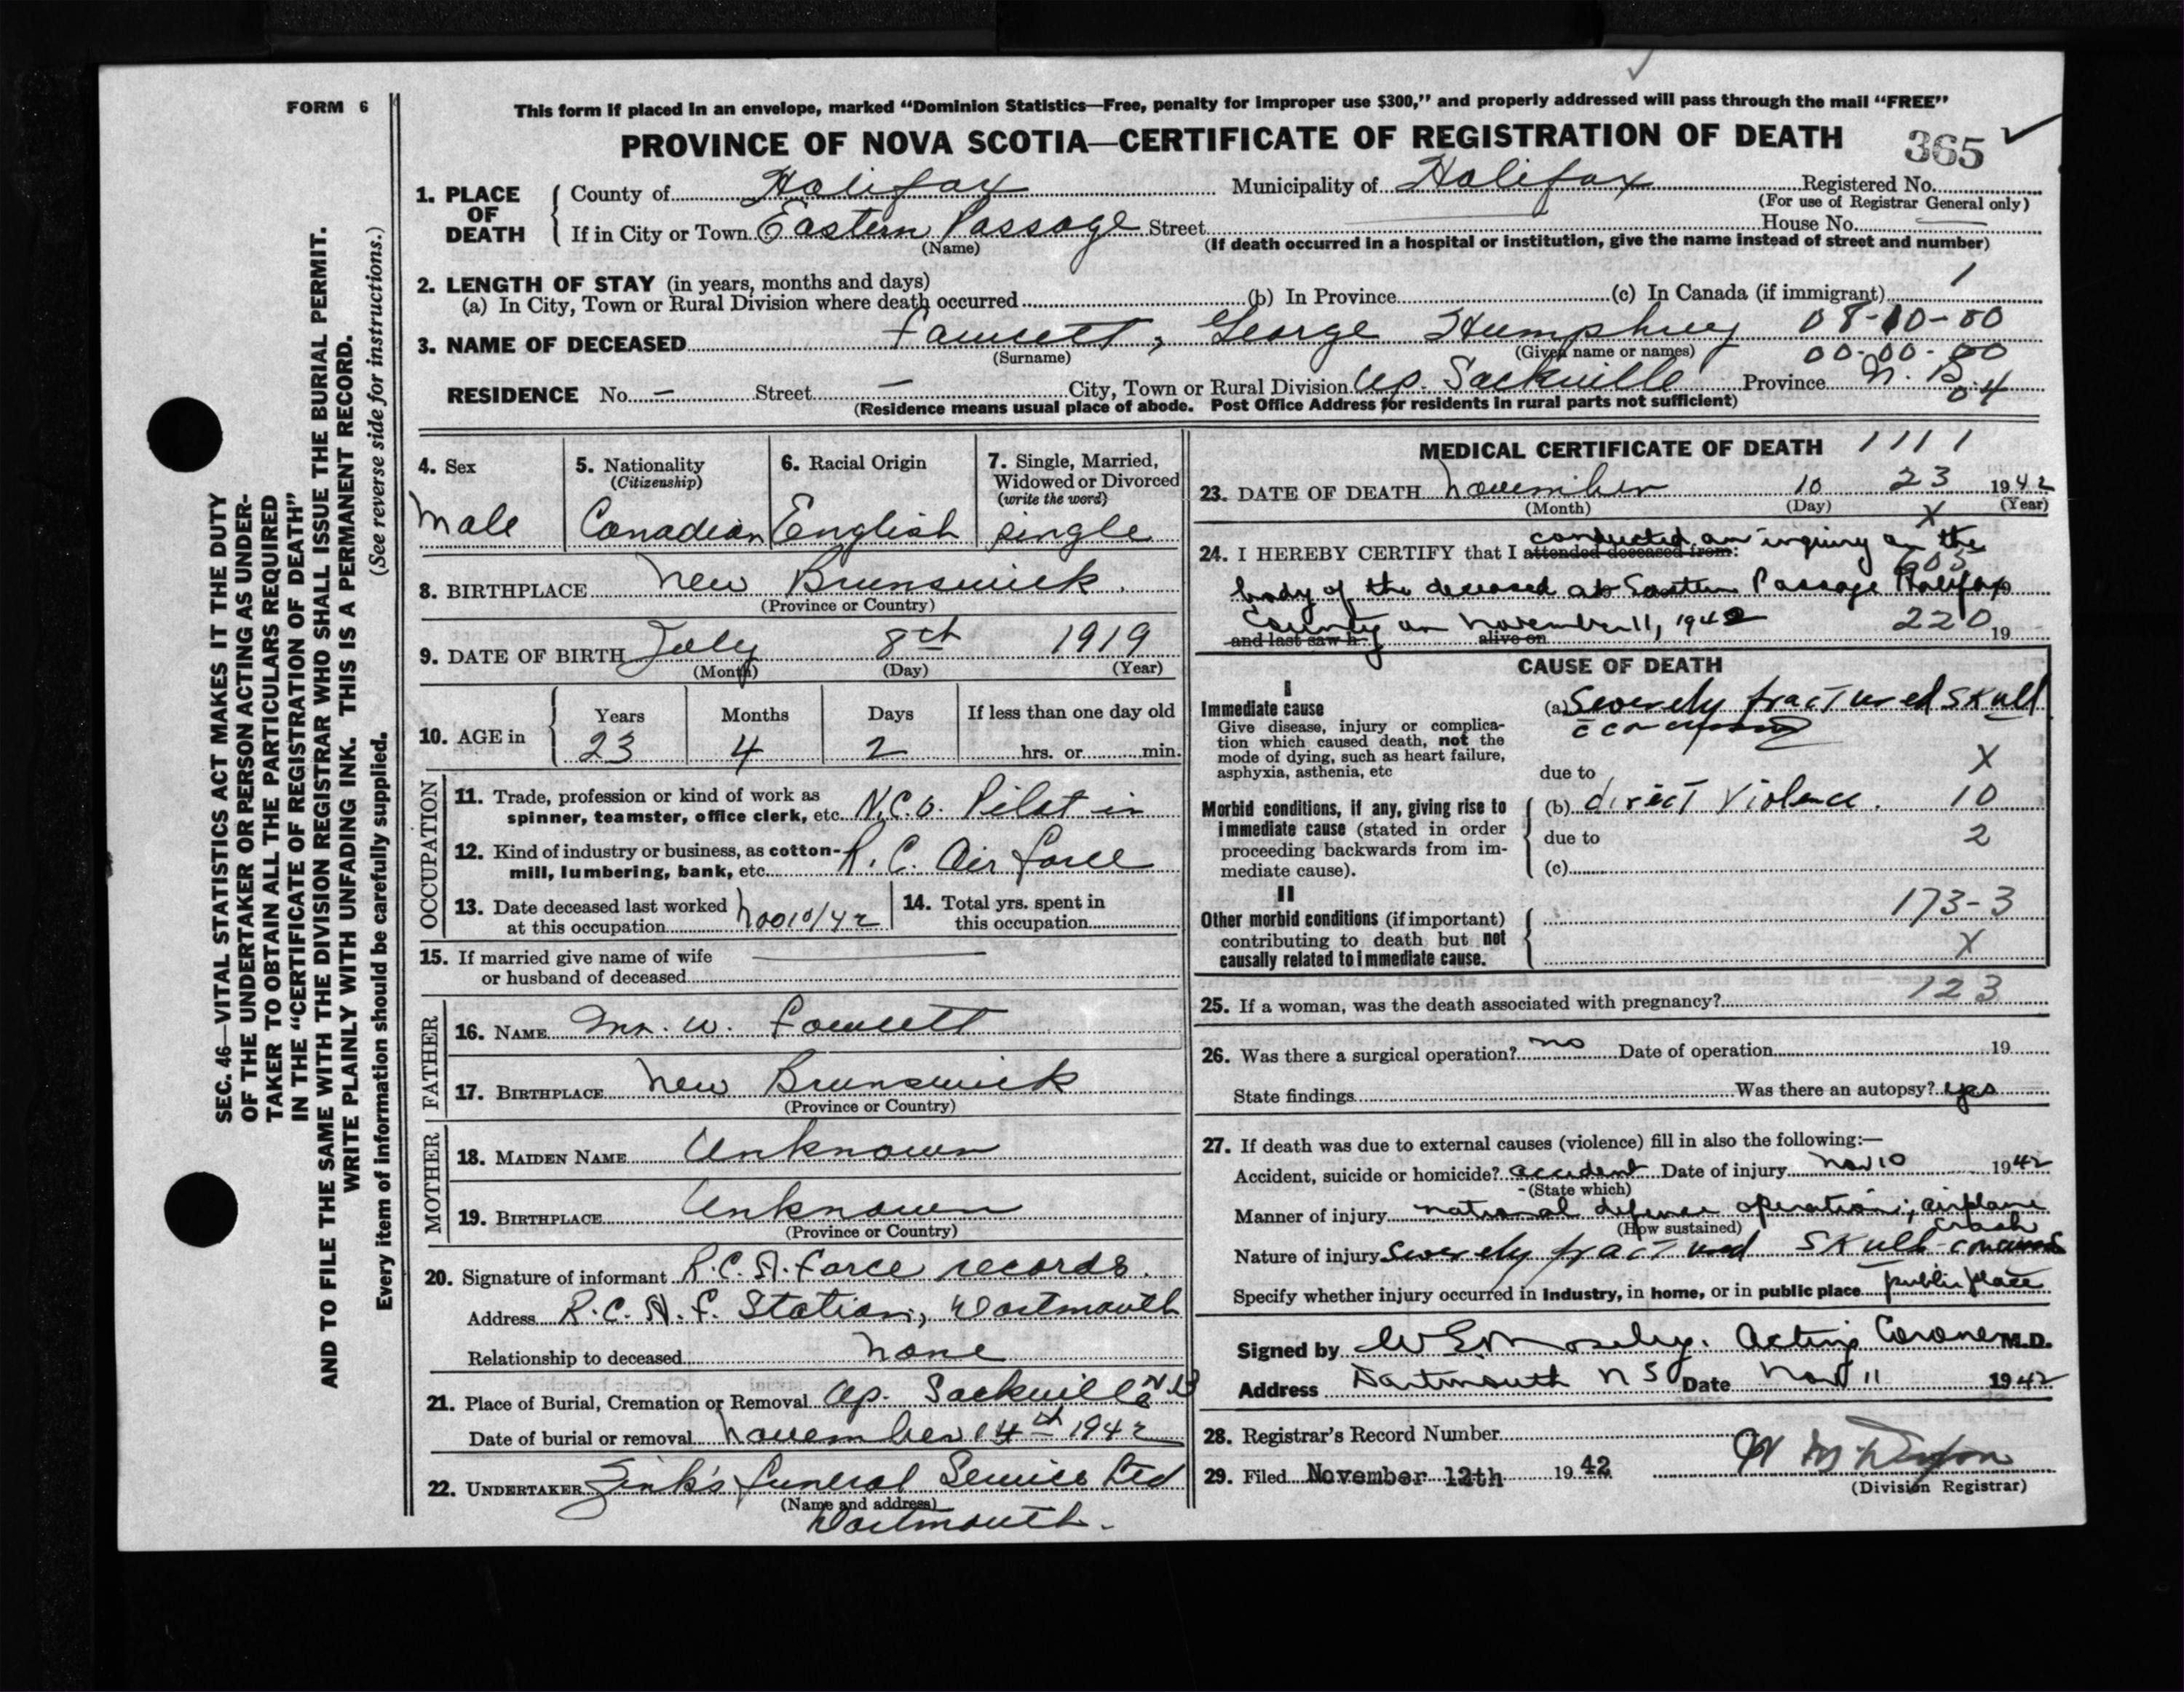 FORM 6
This form if placed in an envelope, marked “Dominion Statistics—Free, penalty for improper use $300,” and properly addressed will pass through the mail “FREE”
PROVINCE OF NOVA SCOTIA—CERTIFICATE OF REGISTRATION OF DEATH
365
1. PLACE OF DEATH County of Halifax Municipality of Halifax Registered No.
(For use of Registrar General only)
If in City or Town Eastern Passage Street House No. —
(Name) (If death occurred in a hospital or institution, give the name instead of street and number)
2. LENGTH OF STAY (in years, months and days) 1
(a) In City, Town or Rural Division where death occurred (b) In Province (c) In Canada (if immigrant)
3. NAME OF DECEASED Fawcett, George Humphrey 08-10-00
(Surname) (Given name or names) 00-00-00
RESIDENCE No. — Street — City, Town or Rural Division Up. Sackville Province N.B. 04
(Residence means usual place of abode. Post Office Address for residents in rural parts not sufficient)
4. Sex Male
5. Nationality (Citizenship) Canadian
6. Racial Origin English
7. Single, Married, Widowed or Divorced (write the word) single
8. BIRTHPLACE New Brunswick
(Province or Country)
9. DATE OF BIRTH July 8th 1919
(Month) (Day) (Year)
10. AGE in Years Months Days If less than one day old
23 4 2 hrs. or min.
OCCUPATION
11. Trade, profession or kind of work as
spinner, teamster, office clerk, etc. N.C.O. Pilot in
12. Kind of industry or business, as cotton-
mill, lumbering, bank, etc. R.C. Air Force
13. Date deceased last worked
at this occupation Nov 10/42
14. Total yrs. spent in
this occupation
15. If married give name of wife
or husband of deceased
FATHER
16. NAME Mr. W. Fawcett
17. BIRTHPLACE New Brunswick
(Province or Country)
MOTHER
18. MAIDEN NAME Unknown
19. BIRTHPLACE Unknown
(Province or Country)
20. Signature of informant R.C.A. Force records.
Address R.C.A.F. Station, Dartmouth
Relationship to deceased None
21. Place of Burial, Cremation or Removal Up. Sackville N.B
Date of burial or removal November 14th 1942
22. UNDERTAKER Zink's Funeral Service Ltd
(Name and address)
Dartmouth.
MEDICAL CERTIFICATE OF DEATH 1111
23. DATE OF DEATH November 10 23 1942
(Month) (Day) X (Year)
24. I HEREBY CERTIFY that I attended deceased from: conducted an inquiry on the
605
body of the deceased at Eastern Passage Halifax
County on November 11, 1942 220
and last saw h alive on 19
CAUSE OF DEATH
I
Immediate cause
Give disease, injury or complica-
tion which caused death, not the
mode of dying, such as heart failure,
asphyxia, asthenia, etc
(a) Severely fractured skull
X
due to
Morbid conditions, if any, giving rise to
immediate cause (stated in order
proceeding backwards from im-
mediate cause).
(b) direct violence. 10
due to 2
(c)
II
Other morbid conditions (if important)
contributing to death but not
causally related to immediate cause.
173-3
X
25. If a woman, was the death associated with pregnancy? 123
26. Was there a surgical operation? no Date of operation 19
State findings Was there an autopsy? yes
27. If death was due to external causes (violence) fill in also the following:—
Accident, suicide or homicide? accident Date of injury Nov 10 1942
(State which)
Manner of injury national defense operation; airplane crash
(How sustained)
Nature of injury Severely fractured skull
Specify whether injury occurred in industry, in home, or in public place public place
Signed by W E Moseley. Acting Coroner M.D.
Address Dartmouth N S Date Nov 11 1942
28. Registrar's Record Number
29. Filed November 12th 1942
(Division Registrar)
SEC. 46—VITAL STATISTICS ACT MAKES IT THE DUTY
OF THE UNDERTAKER OR PERSON ACTING AS UNDER-
TAKER TO OBTAIN ALL THE PARTICULARS REQUIRED
IN THE “CERTIFICATE OF REGISTRATION OF DEATH”
AND TO FILE THE SAME WITH THE DIVISION REGISTRAR WHO SHALL ISSUE THE BURIAL PERMIT.
WRITE PLAINLY WITH UNFADING INK. THIS IS A PERMANENT RECORD.
Every item of information should be carefully supplied. (See reverse side for instructions.)